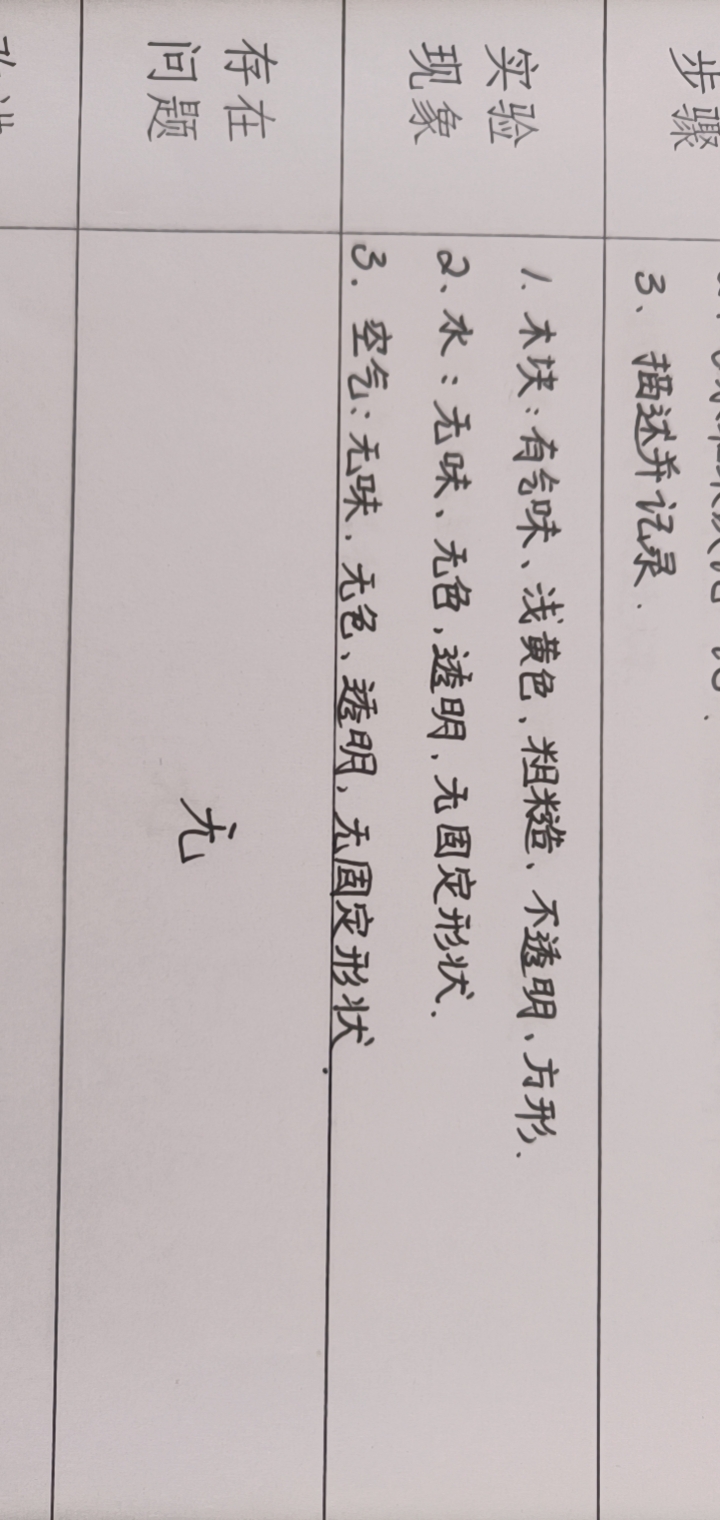 步骤
3、描述并记录.
实验
现象
1.木块:有气味、浅黄色、粗糙、不透明、方形.
2、水:无味、无色,透明,无固定形状.
3.空气:无味.无色、透明,无固定形状.
存在
问题
无